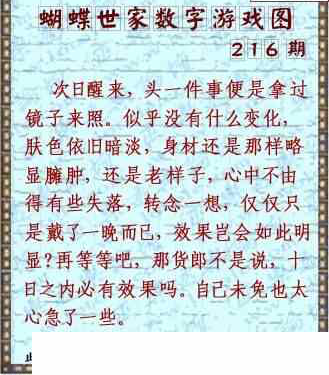 蝴蝶世家数字游戏图
216期
次日醒来，头一件事便是拿过
镜子来照。似乎没有什么变化，
肤色依旧暗淡，身材还是那样略
显臃肿，还是老样子，心中不由
得有些失落，转念一想，仅仅只
是戴了一晚而已，效果岂会如此明
显？再等等吧，那货郎不是说，十
日之内必有效果吗。自己未免也太
心急了一些。